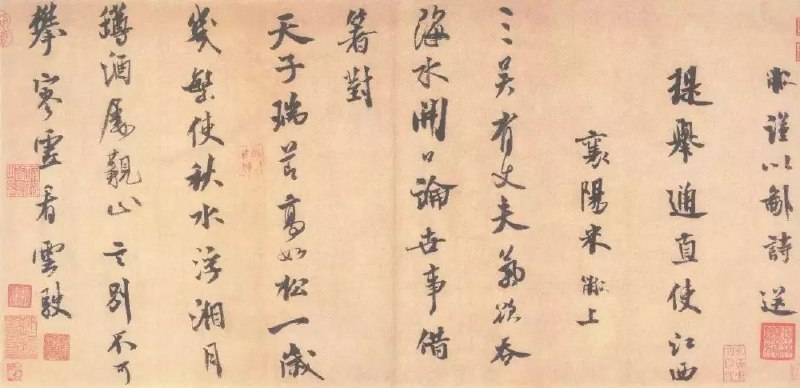 黻謹以鄙詩送
提舉通直使江西
襄陽米黻上
三吳有丈夫氣欲吞
海水開口論世事借
箸對
天子瑞節高如松一歲
幾使秋水浮湘月
罇酒屢山言別不可
攀寒雲看雲駛